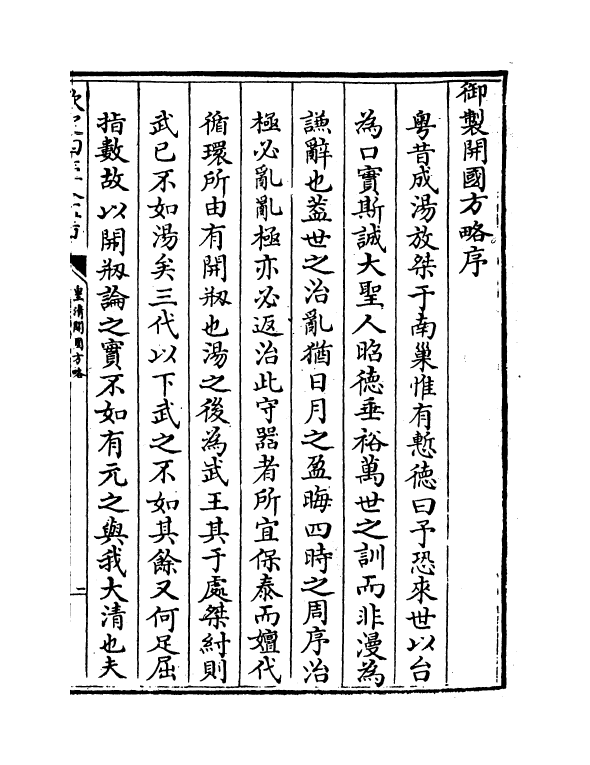 御製開國方略序
粵昔成湯放桀于南巢惟有慙徳曰予恐來世以台
為口實斯誠大聖人昭徳垂裕萬世之訓而非漫為
謙辭也葢世之治亂猶日月之盈晦四時之周序治
極必亂亂極亦必返治此守器者所宜保泰而嬗代
循環所由有開刱也湯之後為武王其于處桀紂則
武已不如湯矣三代以下武之不如其餘又何足屈
指數故以開刱論之實不如有元之與我大清也夫
皇清開國方略
二